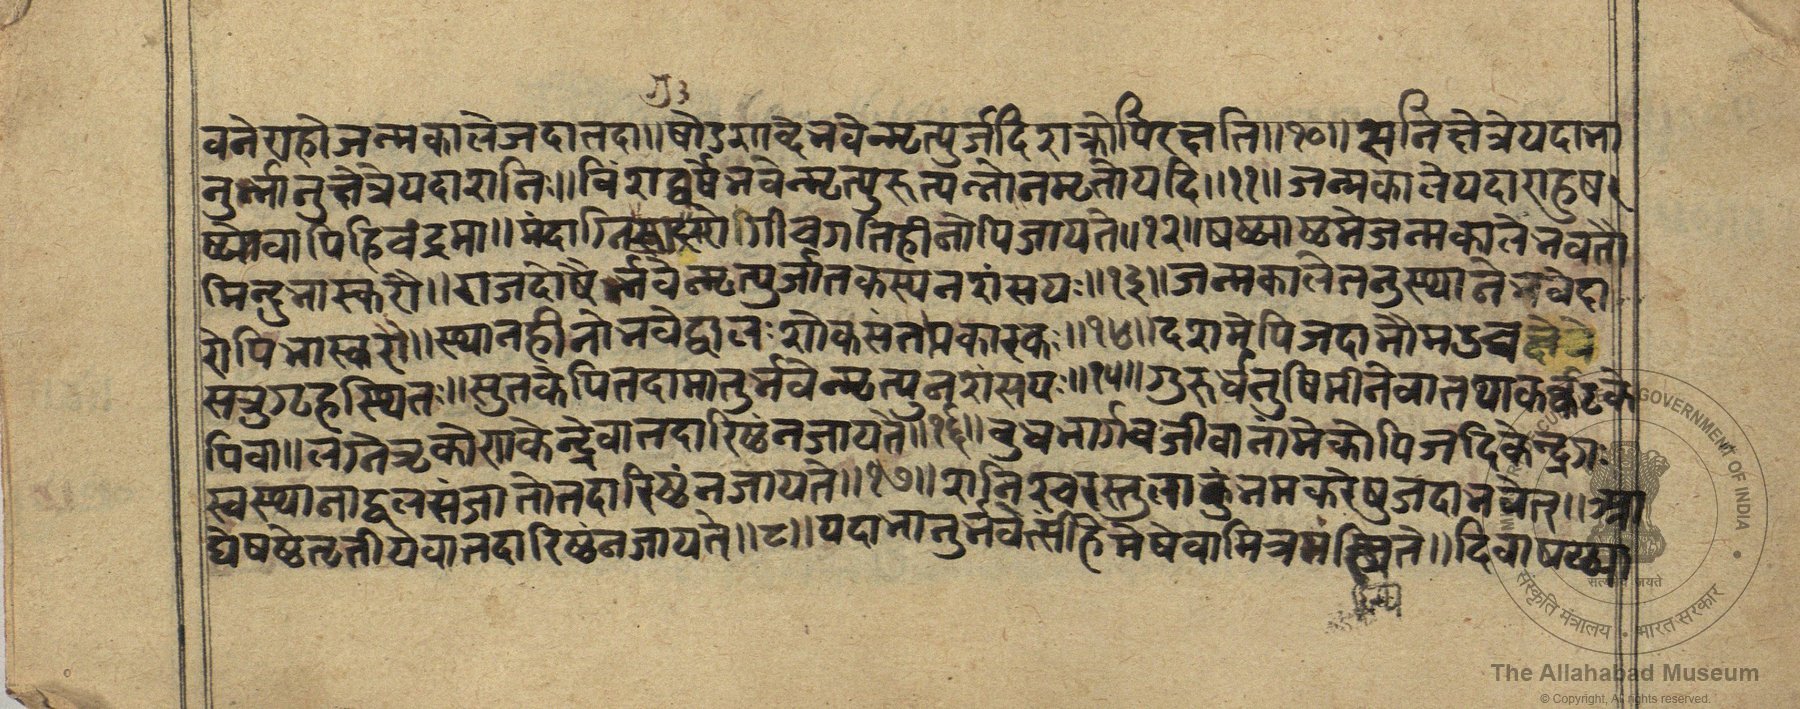 गु३
वने राहो जन्मकाले जदा तदा॥ षोडशाब्दे भवेन्मृत्युर्जदि शक्रोपि रक्षति॥१०॥ सनि क्षेत्रे यदा भा
नुर्भानुक्षेत्रे यदा शनिः॥ विंशद्वर्षे भवेन्मृत्युरुत्पन्नो न मृतो यदि॥११॥ जन्मकाले यदा राहु ष
ष्ट्यो वापि हि चंद्रमा॥ मंदाग्नि गी च गतिहीनोपि जायते॥१२॥ षष्ट्याष्टमे जन्मकाले भवतौ
मिन्दुभास्करौ॥ राजदोषै र्भवेन्मृत्युर्जातकस्य न शंसयः॥१३॥ जन्मकाले तनुस्थाने भवेदा
रोपि भास्करो॥ स्थानहीनो भवेद्वालः शोकसंतप्रकारकः॥१४॥ दशमेपि जदा भौम उच्च क्षेत्रे
सत्रुगृहस्थितः॥ सुतकेपि तदा मातुर्भवेन्मृत्यु न शंसयः॥१५॥ गुरुर्धनुषि मीने वा तथा कर्कटके
पि वा॥ लग्ने शुको शाकेन्द्रे वा तदारिष्ठं न जायते॥१६॥ बुधभार्गवजीवानामेकोपि जदि केन्द्रगः
स्वस्थानाद्वलसंजातो तदारिष्ठं न जायते॥१७॥ शनिश्चरस्तुलाकुंभमकरेषु जदा भवेत्॥ आ
द्ये षष्ठे तृतीये वा तदारिष्ठं न जायते॥८॥ यदा भानुर्भवेत्सिंहे मेषे वा मित्रमं स्थिते॥ दिवा षष्ट्या
MINISTRY OF CULTURE GOVERNMENT OF INDIA
सत्यमेव जयते
संस्कृति मंत्रालय • भारत सरकार
The Allahabad Museum
© Copyright, All rights reserved.